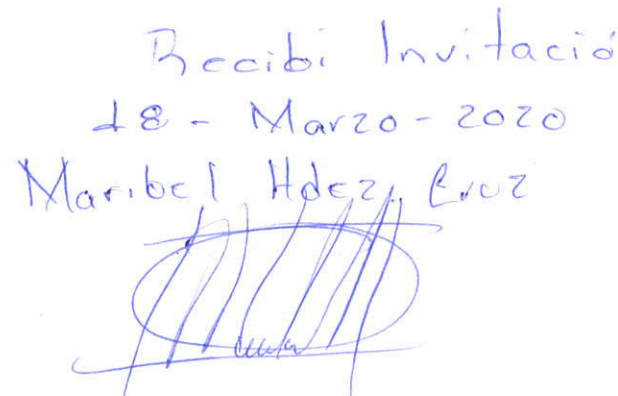 Recibi Invitació
18 - Marzo - 2020
Maribel Hdez. Cruz